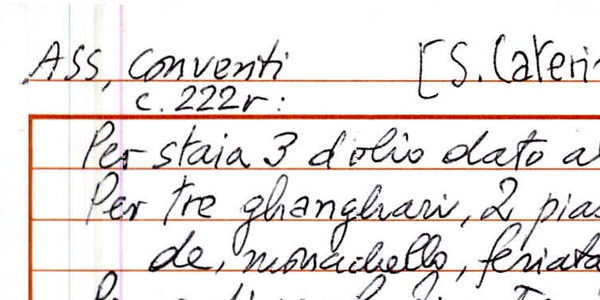 ASS, Conventi [S. Cateri
c. 222r:
Per staia 3 d'olio dato a
Per tre ghangheri, 2 pias
de, monachello, feriata